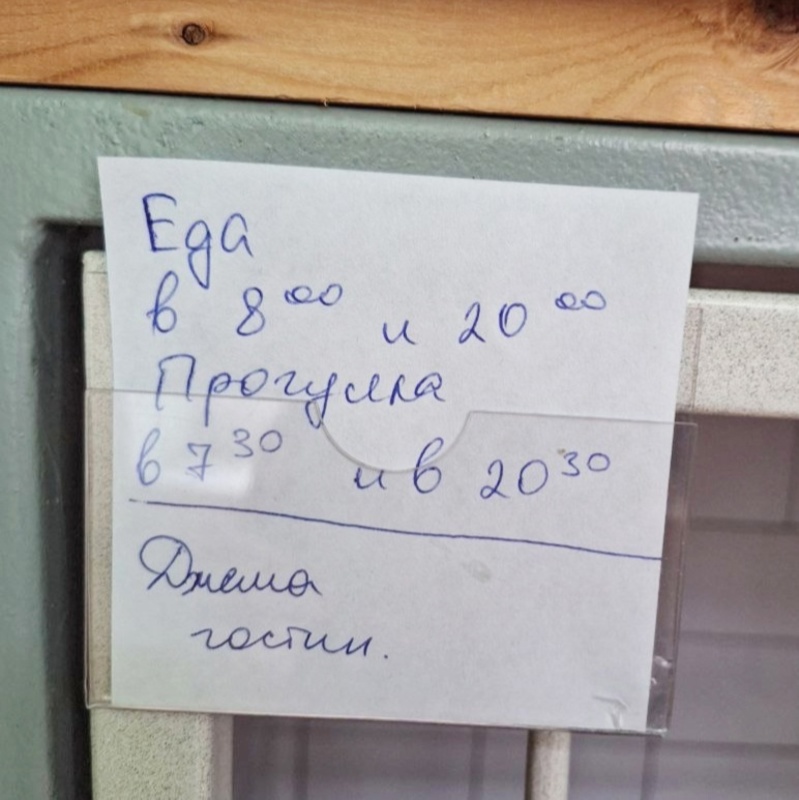 Еда
в 8 00 и 20 00
Прогулка
в 7 30 и в 20 30
гостин.